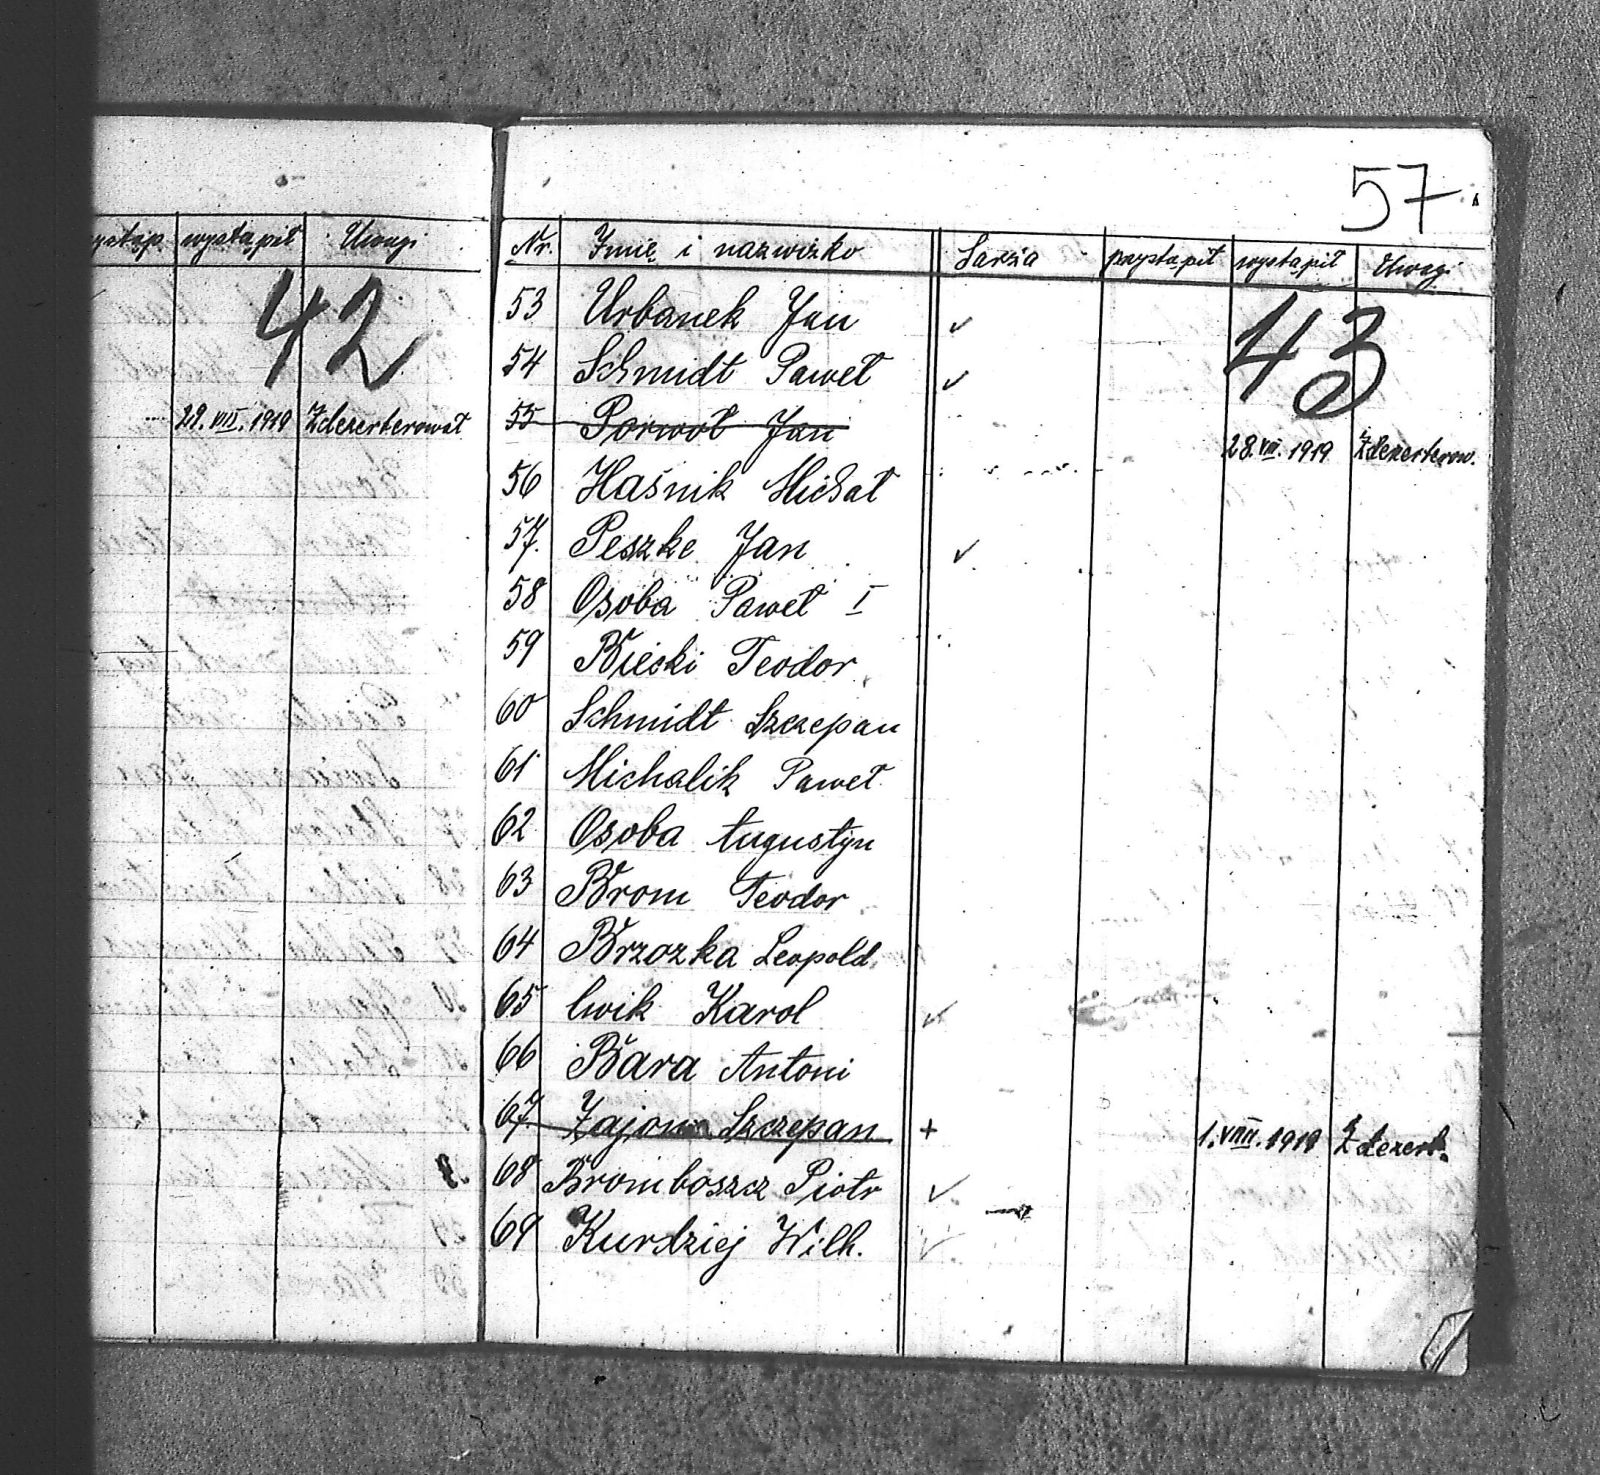 57.
wystąpił Uwagi
42
29. VIII. 1919 Zdezerterował
Nr. Imię i nazwizko Sarża przystąpił wystąpił Uwagi
43
53 Urbanek Jan ✓
54 Schmidt Paweł ✓
55 Porwoł Jan 28. VIII. 1919 Zdezerterow.
56 Haśnik Michał
57. Peszke Jan ✓
58 Osoba Paweł I
59 Bieski Teodor
60 Schmidt Szczepan
61 Michalik Paweł
62 Osoba Augustyn
63 Brom Teodor
64 Brzozka Leopold
65 Cwik Karol ✓
66 Bara Antoni
67 Szczepan + 1. VIII. 1919 Zdezert.
68 Bromboszcz Piotr ✓
69 Kurdziej Wilh. ✓